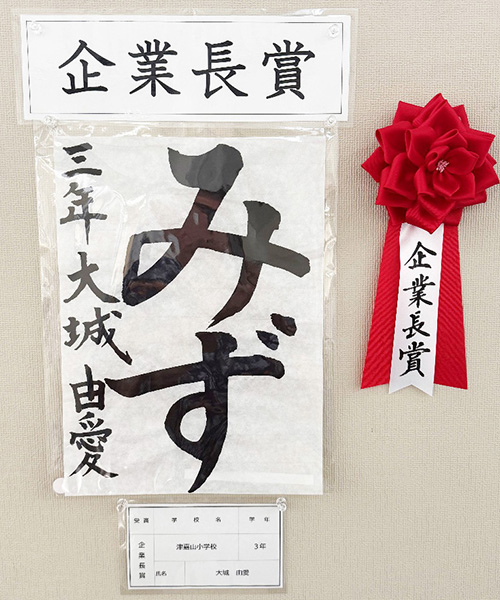 企業長賞
みず
三年 大城 由愛
企業長賞
受賞 学校名 学年
企業長賞 津嘉山小学校 3年
氏名 大城 由愛